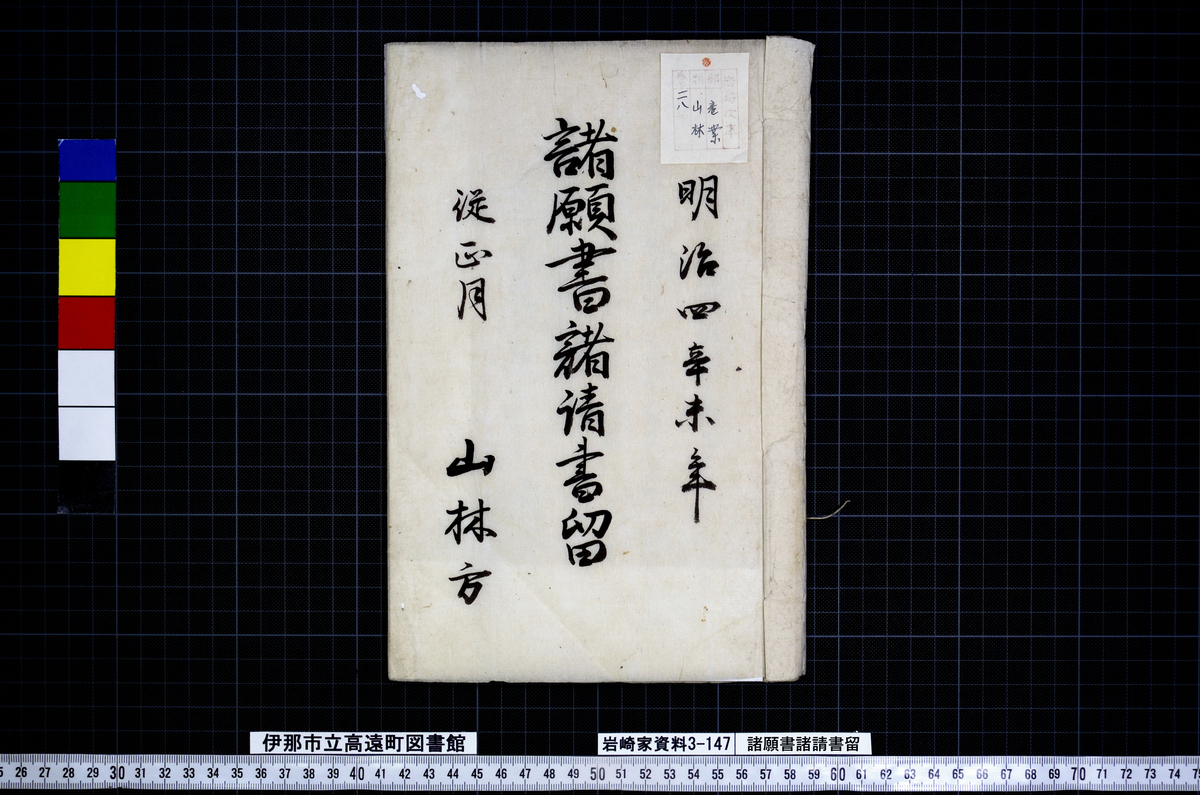 産業
山林
二八
明治四辛未年
諸願書諸請書留
従正月
山林方
伊那市立高遠町図書館
岩崎家資料3-147
諸願書諸請書留
26 27 28 29 30 31 32 33 34 35 36 37 38 39 40 41 42 43 44 45 46 47 48 49 50 51 52 53 54 55 56 57 58 59 60 61 62 63 64 65 66 67 68 69 70 71 72 73 74